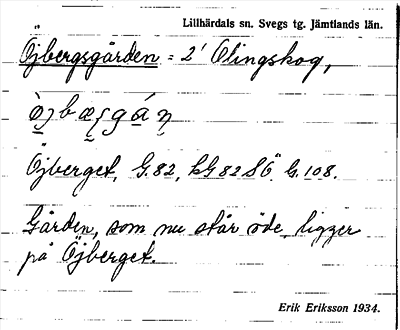 Lillhärdals sn. Svegs tg. Jämtlands län.
Öjbergsgården = 2¹ Olingskog,
Öjberget, G.82, LG 82 SÖ G.108.
Gården, som nu står öde, ligger
på Öjberget.
Erik Eriksson 1934.